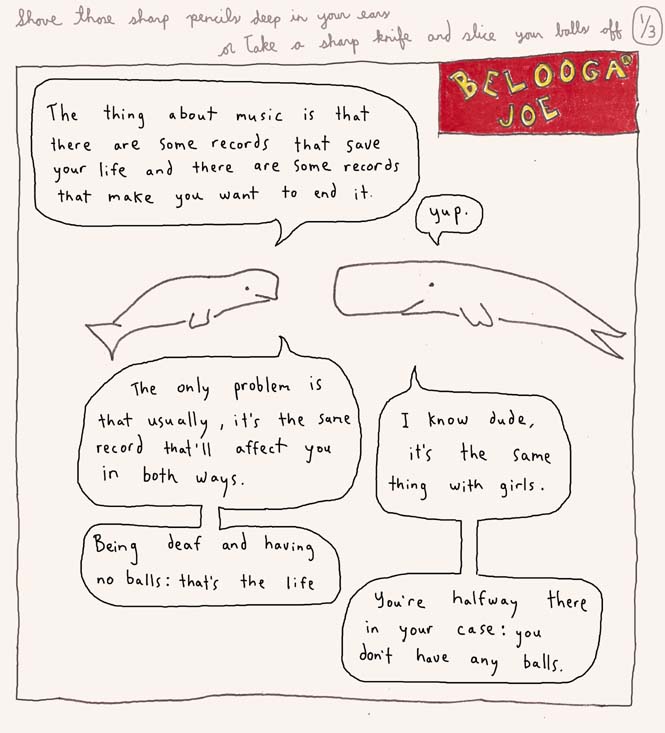 Shove those sharp pencils deep in your ears
or Take a sharp knife and slice your balls off
1/3
BELOOGA
JOE
The thing about music is that
there are some records that save
your life and there are some records
that make you want to end it.
yup.
The only problem is
that usually, it's the same
record that'll affect you
in both ways.
I know dude,
it's the same
thing with girls.
Being deaf and having
no balls: that's the life
You're halfway there
in your case: you
don't have any balls.